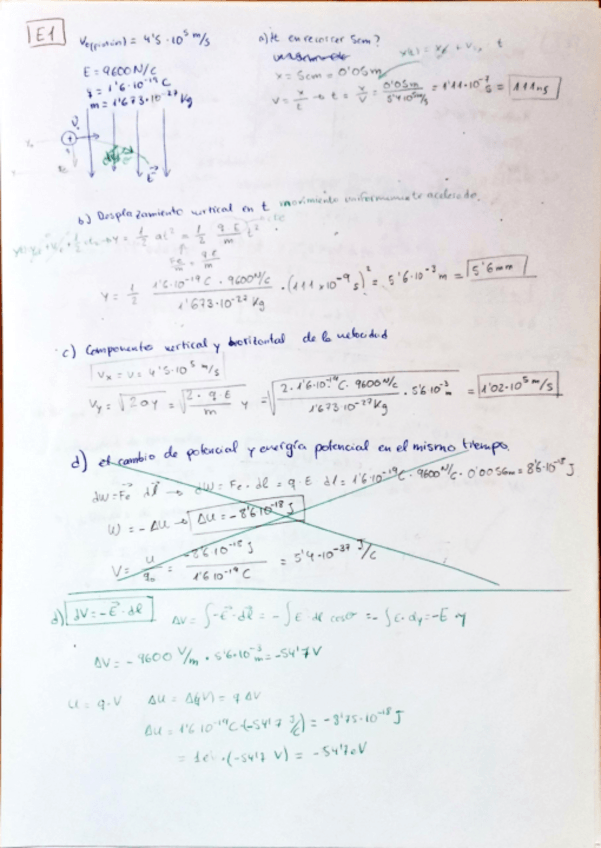 E1
V₀(protón) = 4'5 · 10⁵ m/s
E = 9600 N/C
q = 1'6 · 10⁻¹⁹ C
m = 1'673 · 10⁻²⁷ Kg
a) te en recorrer 5cm?
x = 5cm = 0'05m
V = x/t → t = x/V = 0'05m / 5'4·10⁵ m/s = 1'11·10⁻⁷ s = 111 ns
b) Desplazamiento vertical en t movimiento uniformemente acelerado.
Y = 1/2 at² = 1/2 q·E/m t²
Fe/m = q·E/m
Y = 1/2 1'6·10⁻¹⁹ C · 9600 N/C / 1'673·10⁻²⁷ Kg · (111 x10⁻⁹ s)² = 5'6·10⁻³ m = 5'6 mm
c) Componente vertical y horizontal de la velocidad
Vx = V = 4'5·10⁵ m/s
Vy = √2ay = √2·q·E/m y = √2·1'6·10⁻¹⁹ C · 9600 N/C / 1'673·10⁻²⁷ Kg · 5'6·10⁻³ m = 1'02·10⁵ m/s
d) el cambio de potencial y energía potencial en el mismo tiempo.
dW = Fe dl → dW = Fe · dl = q·E dl = 1'6·10⁻¹⁹ C · 9600 N/C · 0'0056m = 8'6·10⁻¹⁸ J
W = -ΔU → ΔU = -8'6·10⁻¹⁸ J
V = u/q₀ = -8'6·10⁻¹⁸ J / 1'6·10⁻¹⁹ C = 5'4·10⁻³⁷ J/C
d) dV = -E · dl ΔV = ∫-E·dl = -∫E·dl cosθ = -∫E·dy = -E y
ΔV = -9600 V/m · 5'6·10⁻³ m = -54'7 V
U = q·V ΔU = Δ(qV) = q ΔV
ΔU = 1'6·10⁻¹⁹ C · (-54'7 J/C) = -8'75·10⁻¹⁸ J
= 1e · (-54'7 V) = -54'7 eV